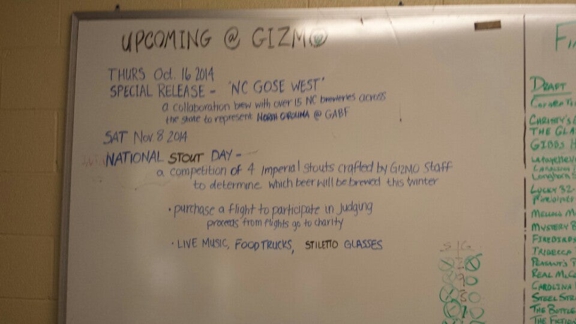 UPCOMING @ GIZMO
THURS Oct. 16 2014
SPECIAL RELEASE - "NC GOSE WEST"
a collaboration brew with over 15 NC breweries across
the state to represent NORTH CAROLINA @ GABF
SAT Nov. 8 2014
NATIONAL STOUT DAY -
a competition of 4 Imperial stouts crafted by GIZMO staff
to determine which beer will be brewed this winter
• purchase a flight to participate in judging
proceeds from flights go to charity
• LIVE MUSIC, FOOD TRUCKS, STILETTO GLASSES
S | G
DRAFT
THE GLA
GIBBS H
LUCKY 32
MELLOW M
MYSTERY B
TRIBECCA
REAL MCC
CAROLINA
STEEL STR
THE BOTTLE